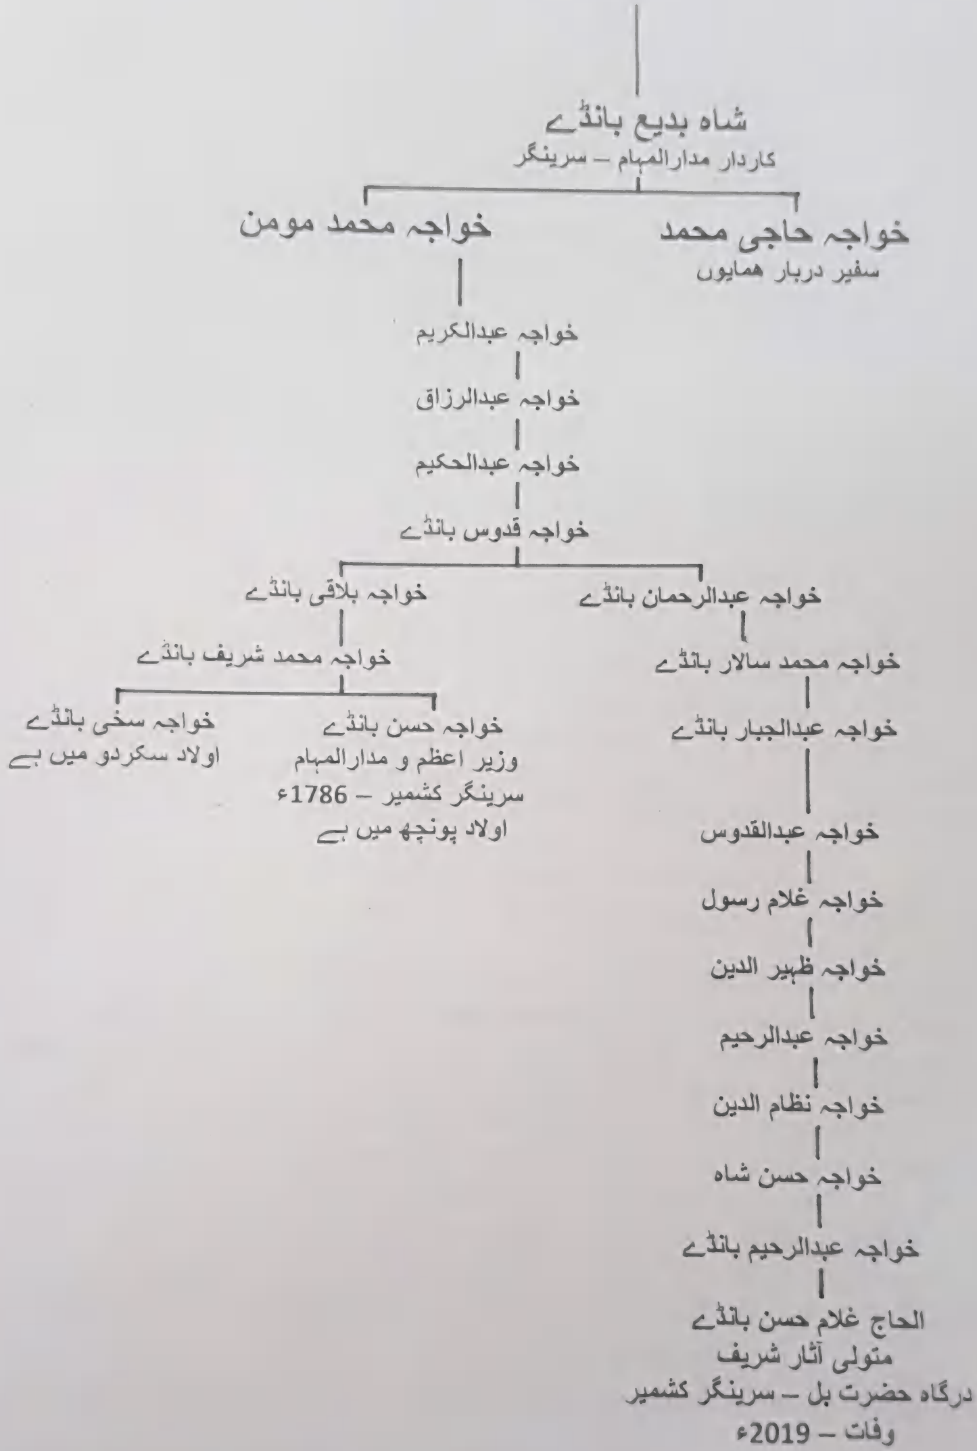 شاہ بدیع بانڈے
کاردار مدارالمہام – سرینگر
خواجہ حاجی محمد
سفیر دربار ھمایوں
خواجہ محمد مومن
خواجہ عبدالکریم
خواجہ عبدالرزاق
خواجہ عبدالحکیم
خواجہ قدوس بانڈے
خواجہ عبدالرحمان بانڈے
خواجہ محمد سالار بانڈے
خواجہ عبدالجبار بانڈے
خواجہ عبدالقدوس
خواجہ غلام رسول
خواجہ ظہیر الدین
خواجہ عبدالرحیم
خواجہ نظام الدین
خواجہ حسن شاہ
خواجہ عبدالرحیم بانڈے
الحاج غلام حسن بانڈے
متولی آثار شریف
درگاہ حضرت بل – سرینگر کشمیر
وفات – 2019ء
خواجہ بلاقی بانڈے
خواجہ محمد شریف بانڈے
خواجہ حسن بانڈے
وزیر اعظم و مدارالمہام
سرینگر کشمیر – 1786ء
اولاد پونچھ میں ہے
خواجہ سخی بانڈے
اولاد سکردو میں ہے